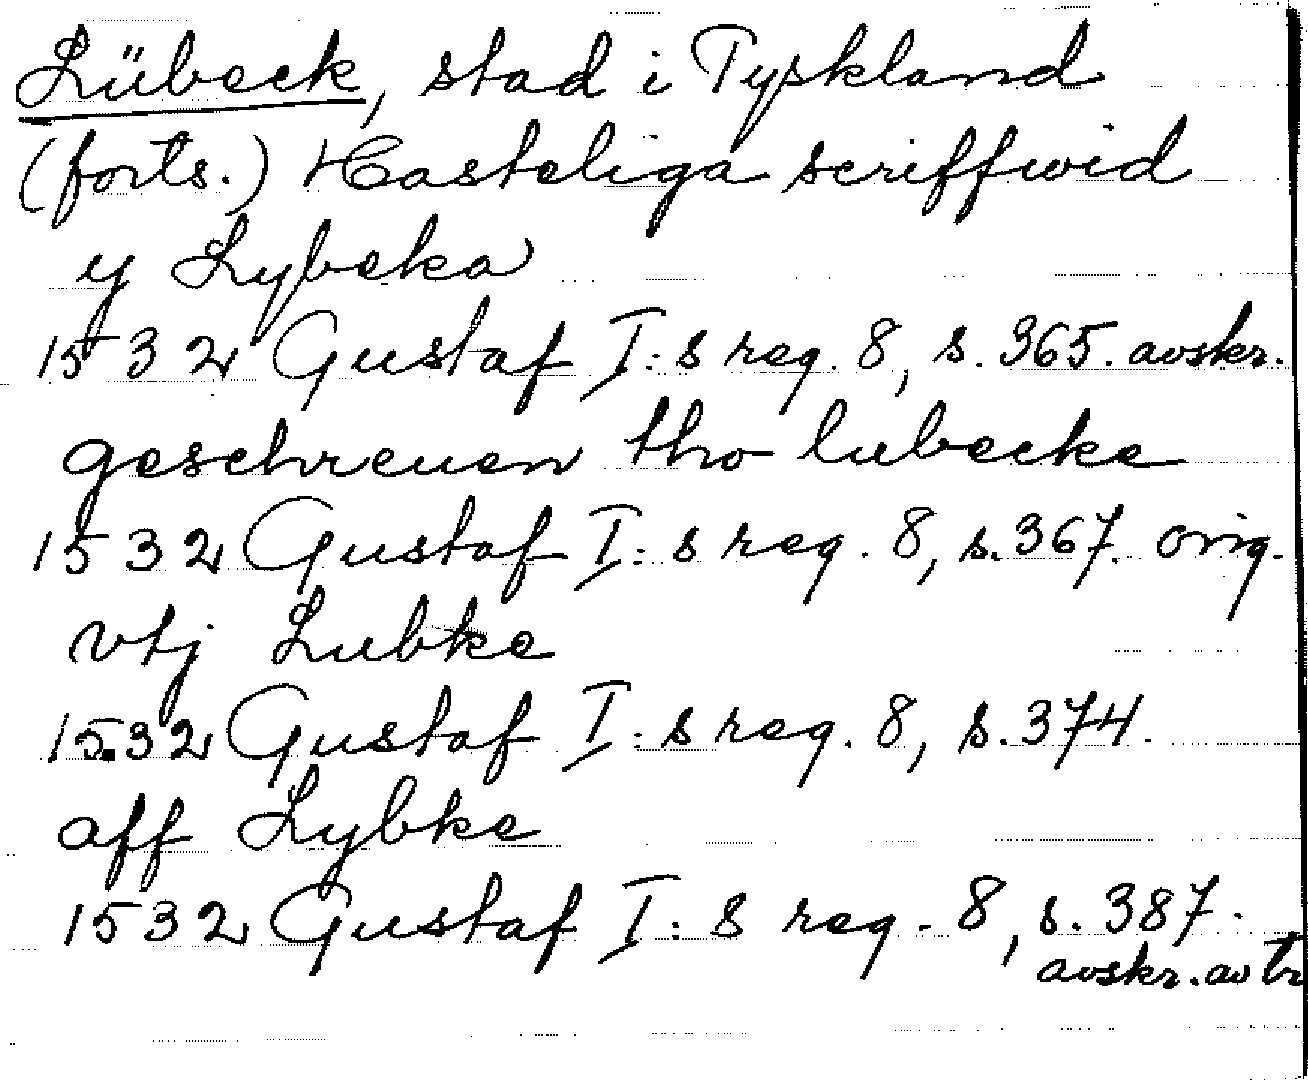 Lübeck, stad i Tyskland
(forts.) Hasteliga scriffwid
y Lybeka
1532 Gustaf I:s reg. 8, s. 365. avskr.
geschreuen tho lubecke
1532 Gustaf I:s reg. 8, s. 367. orig.
vtj Lubke
1532 Gustaf I:s reg. 8, s. 374.
aff Lybke
1532 Gustaf I:s reg. 8, s. 387.
avskr. av tr